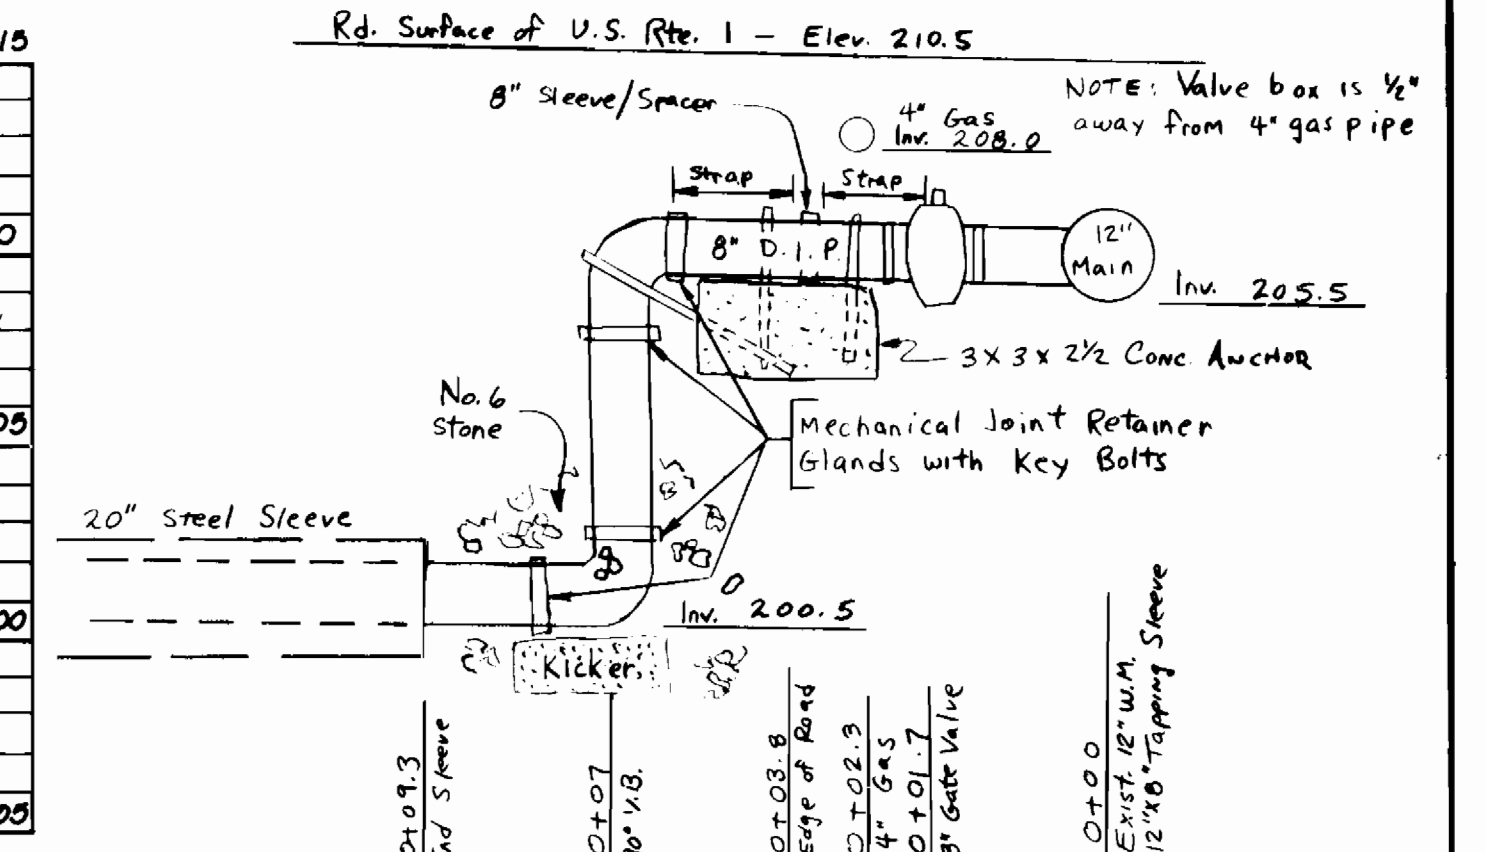 15
Rd. Surface of U.S. Rte. 1 - Elev. 210.5
8" Sleeve/Spacer
4" Gas
Inv. 208.0
NOTE: Valve box is ½"
away from 4" gas pipe
Strap
Strap
0
8" D.I.P.
12"
Main
Inv. 205.5
3 X 3 x 2½ Conc. ANCHOR
No. 6
Stone
05
Mechanical Joint Retainer
Glands with Key Bolts
20" Steel Sleeve
Inv. 200.5
00
Kicker
05
0+09.3
End Sleeve
0+07
90° V.B.
0+03.8
Edge of Road
0+02.3
4" Gas
0+01.7
8" Gate Valve
0+00
Exist. 12" W.M.
12"x8" Tapping Sleeve